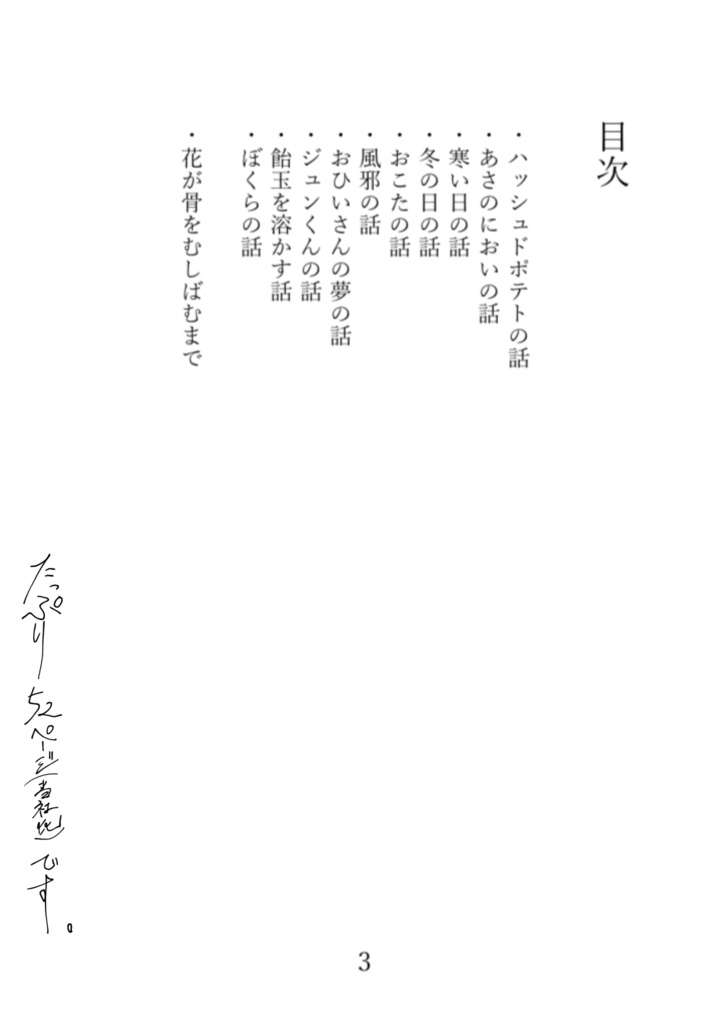 目次
・ハッシュドポテトの話
・あさのにおいの話
・寒い日の話
・冬の日の話
・おこたの話
・風邪の話
・おひいさんの夢の話
・ジュンくんの話
・飴玉を溶かす話
・ぼくらの話
・花が骨をむしばむまで
たっぷり52ページ(当社比)です。
3